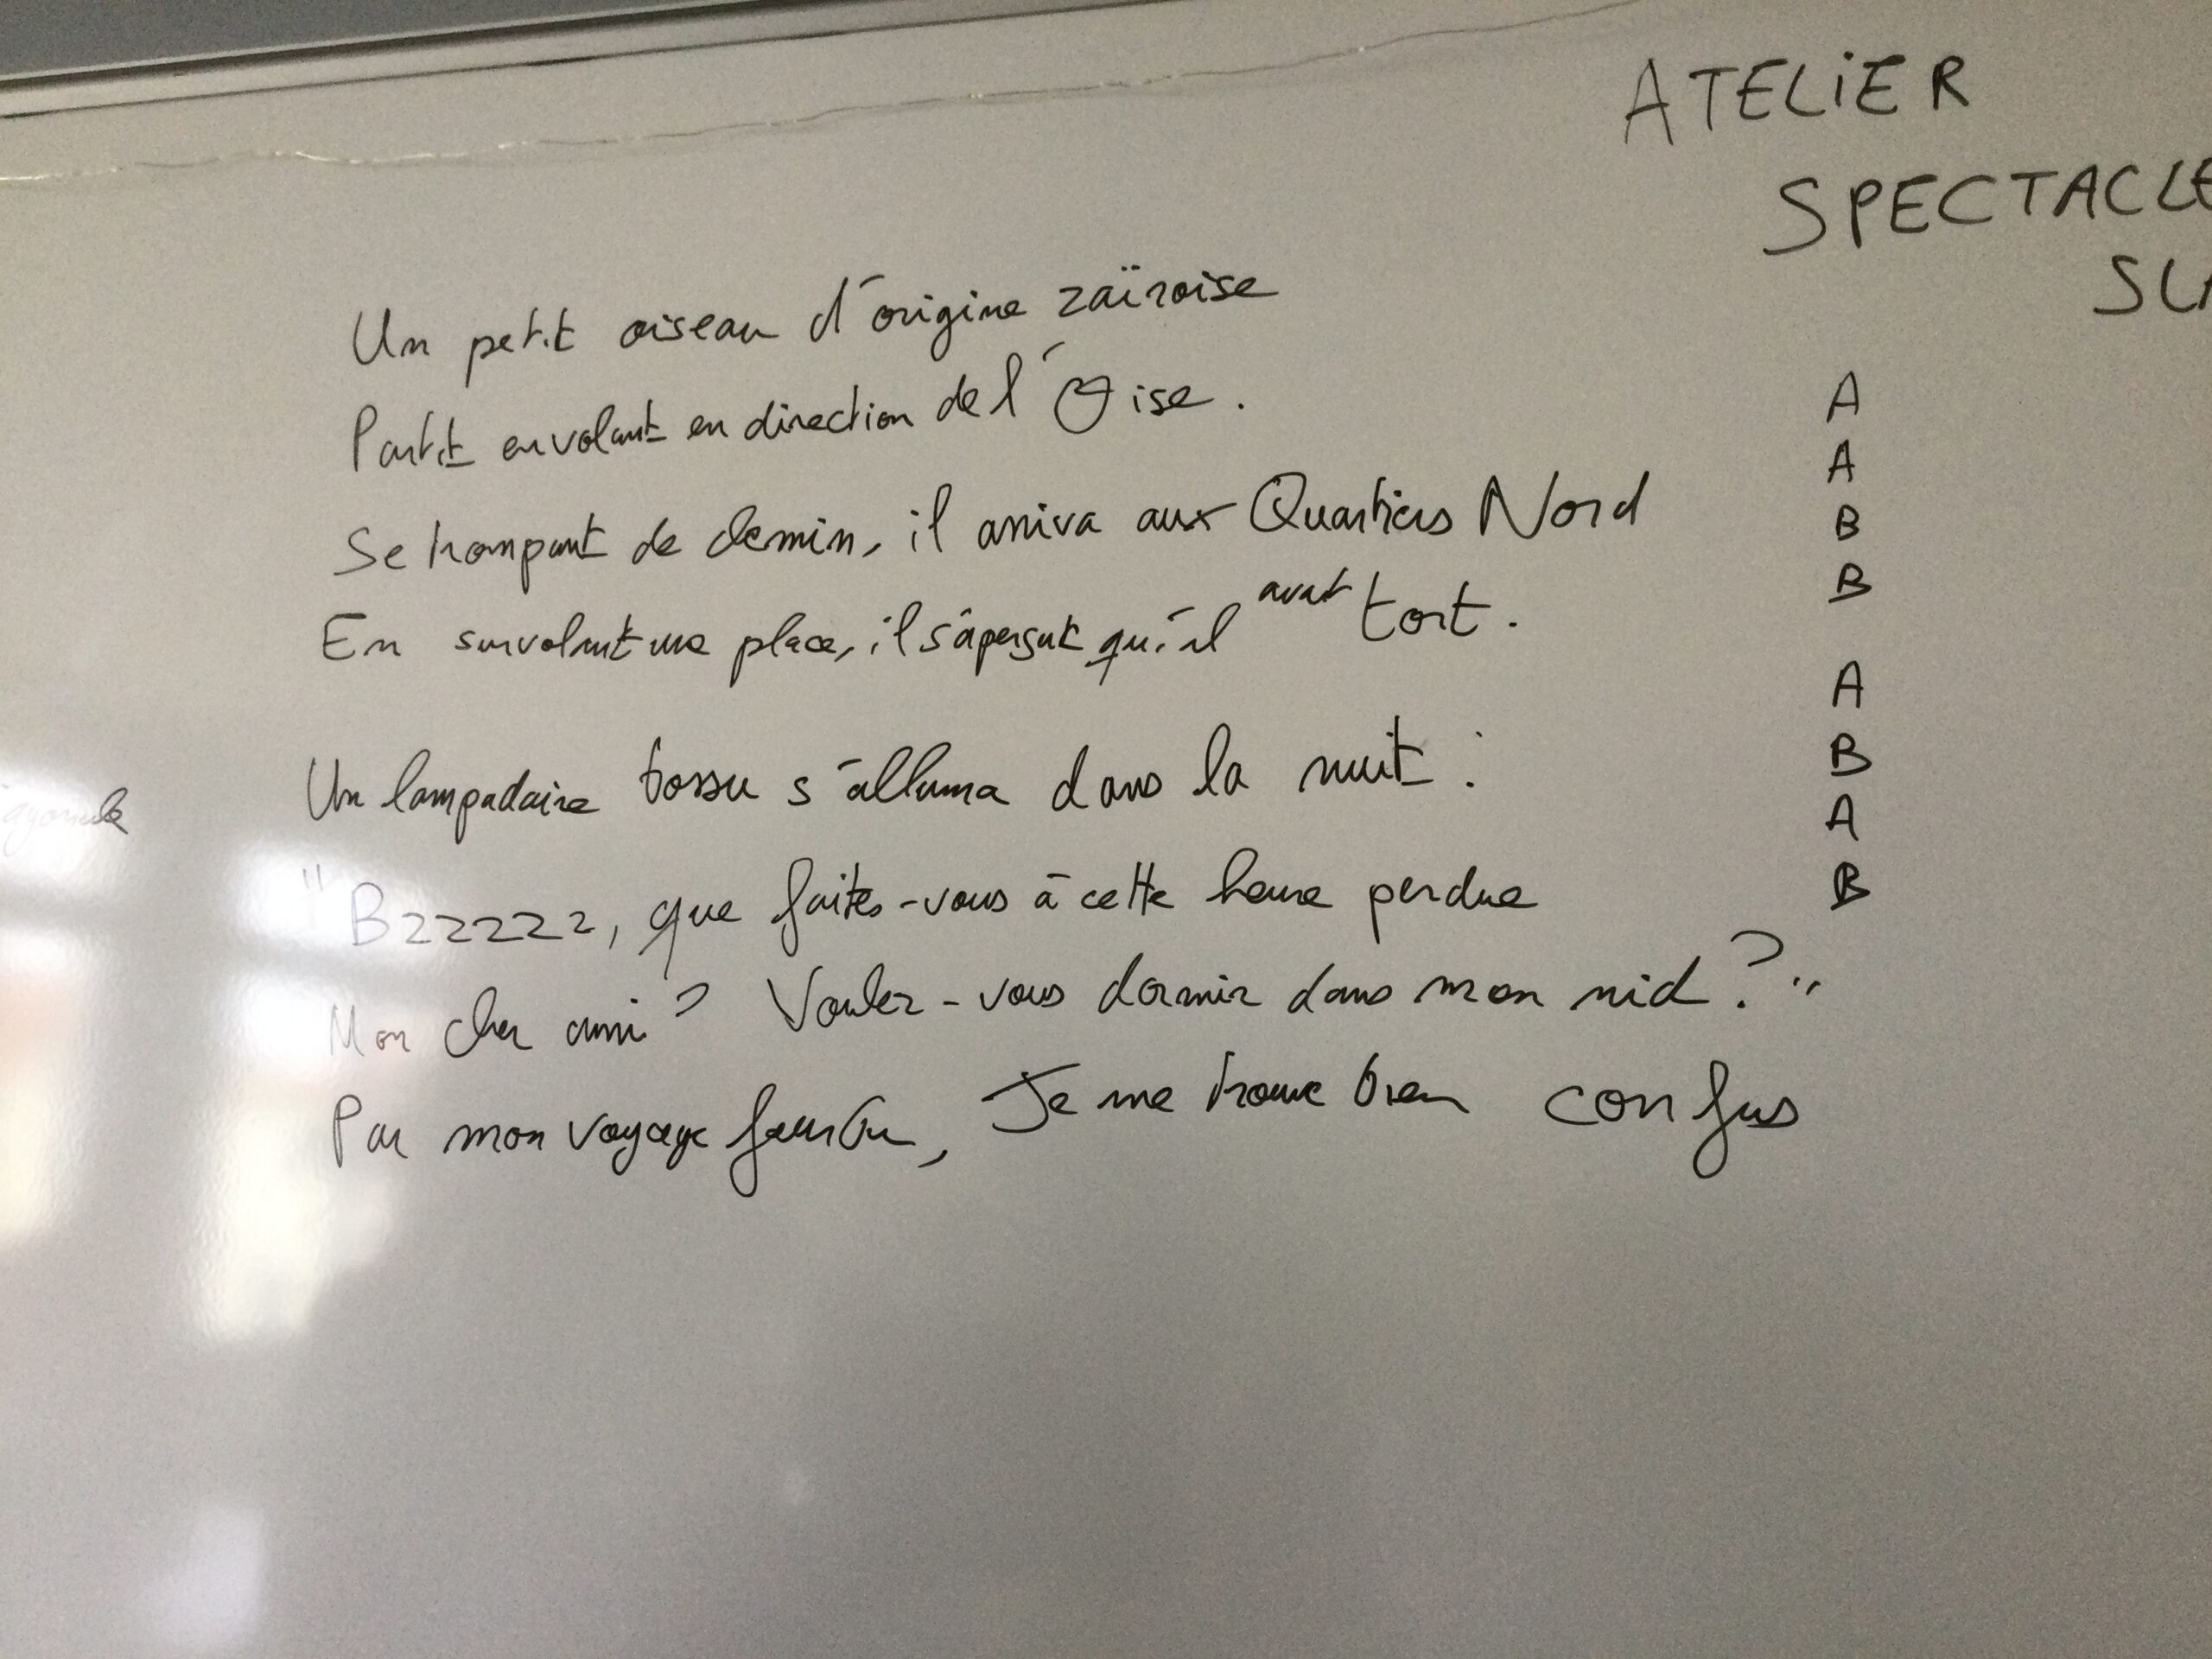 ATELIER
SPECTACLE
Un petit oiseau d'origine zaïroise
Partit en volant en direction de l'Oise.
Se trompant de chemin, il arriva aux Quartiers Nord
En survolant une place, il s'aperçut qu'il avait tort.
Un lampadaire bossu s'alluma dans la nuit :
"Bzzzzz, que faites-vous à cette heure perdue
Mon cher ami ? Voulez-vous dormir dans mon nid ?"
Par mon voyage fourbu, Je me trouve bien confus
A
A
B
B
A
B
A
B